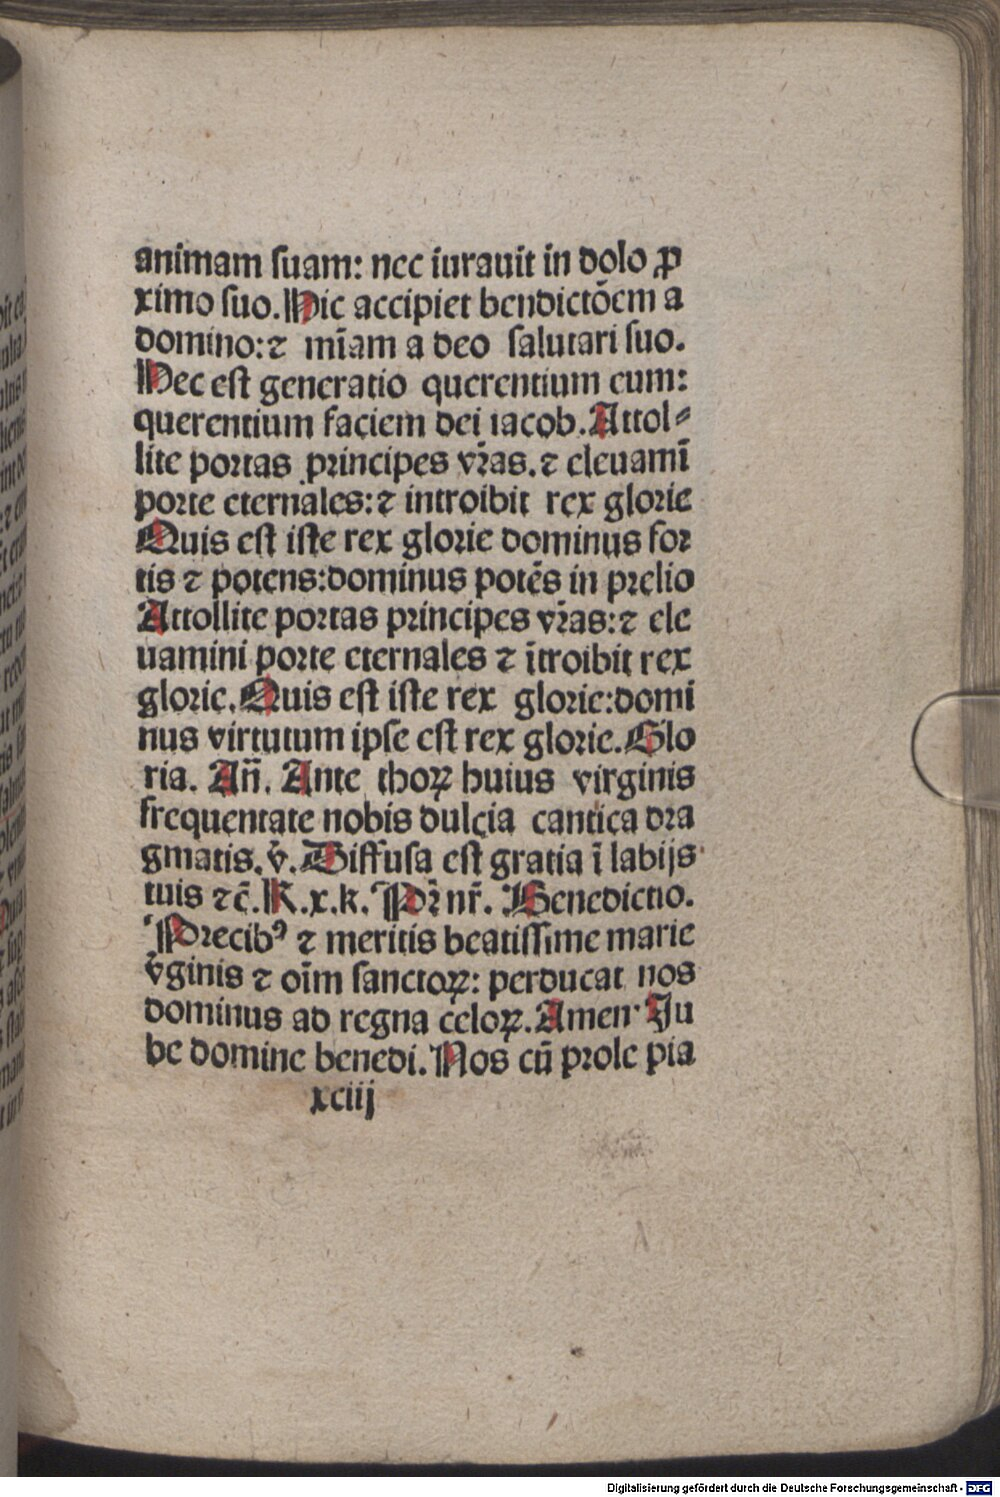 animam suam: nec iurauit in dolo ꝓ
ximo suo. Hic accipiet bendictōem a
domino: ⁊ mīam a deo salutari suo.
Hec est generatio querentium eum:
querentium faciem dei iacob. Attol⸗
lite portas principes vr̄as. ⁊ eleuamī
porte eternales: ⁊ introibit rex glorie
Quis est iste rex glorie dominus for
tis ⁊ potens: dominus potēs in prelio
Attollite portas principes vr̄as: ⁊ ele
uamini porte eternales ⁊ ītroibit rex
glorie. Quis est iste rex glorie: domi
nus virtutum ipse est rex glorie. Glo
ria. An̄. Ante thoꝝ huius virginis
frequentate nobis dulcia cantica dra
gmatis. v̄. Diffusa est gratia ī labijs
tuis ⁊c̄. K. x. k. Pr̄ nr̄. Benedictio.
Precibꝰ ⁊ meritis beatissime marie
v̄ginis ⁊ oīm sanctoꝝ: perducat nos
dominus ad regna celoꝝ. Amen. Ju
be domine benedi. Nos cū prole pia
xciij
Digitalisierung gefördert durch die Deutsche Forschungsgemeinschaft - DFG